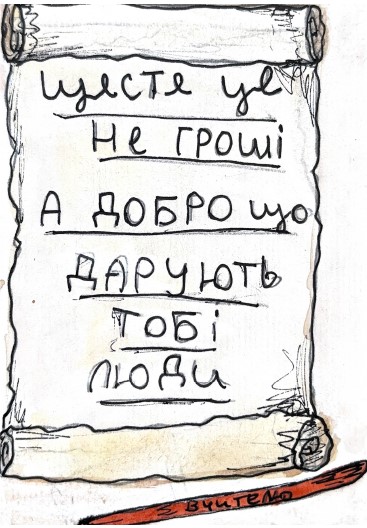 щастя це
Не гроші
А ДОБРО що
ДАРУЮТЬ
ТОБІ
ЛЮДИ
вчителю